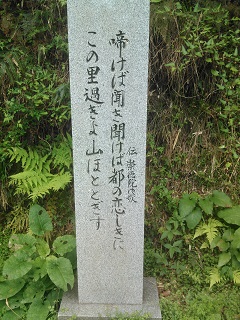 啼けば聞き聞けば都の恋しきに
この里過ぎよ山ほととぎす
伝 崇徳院御歌